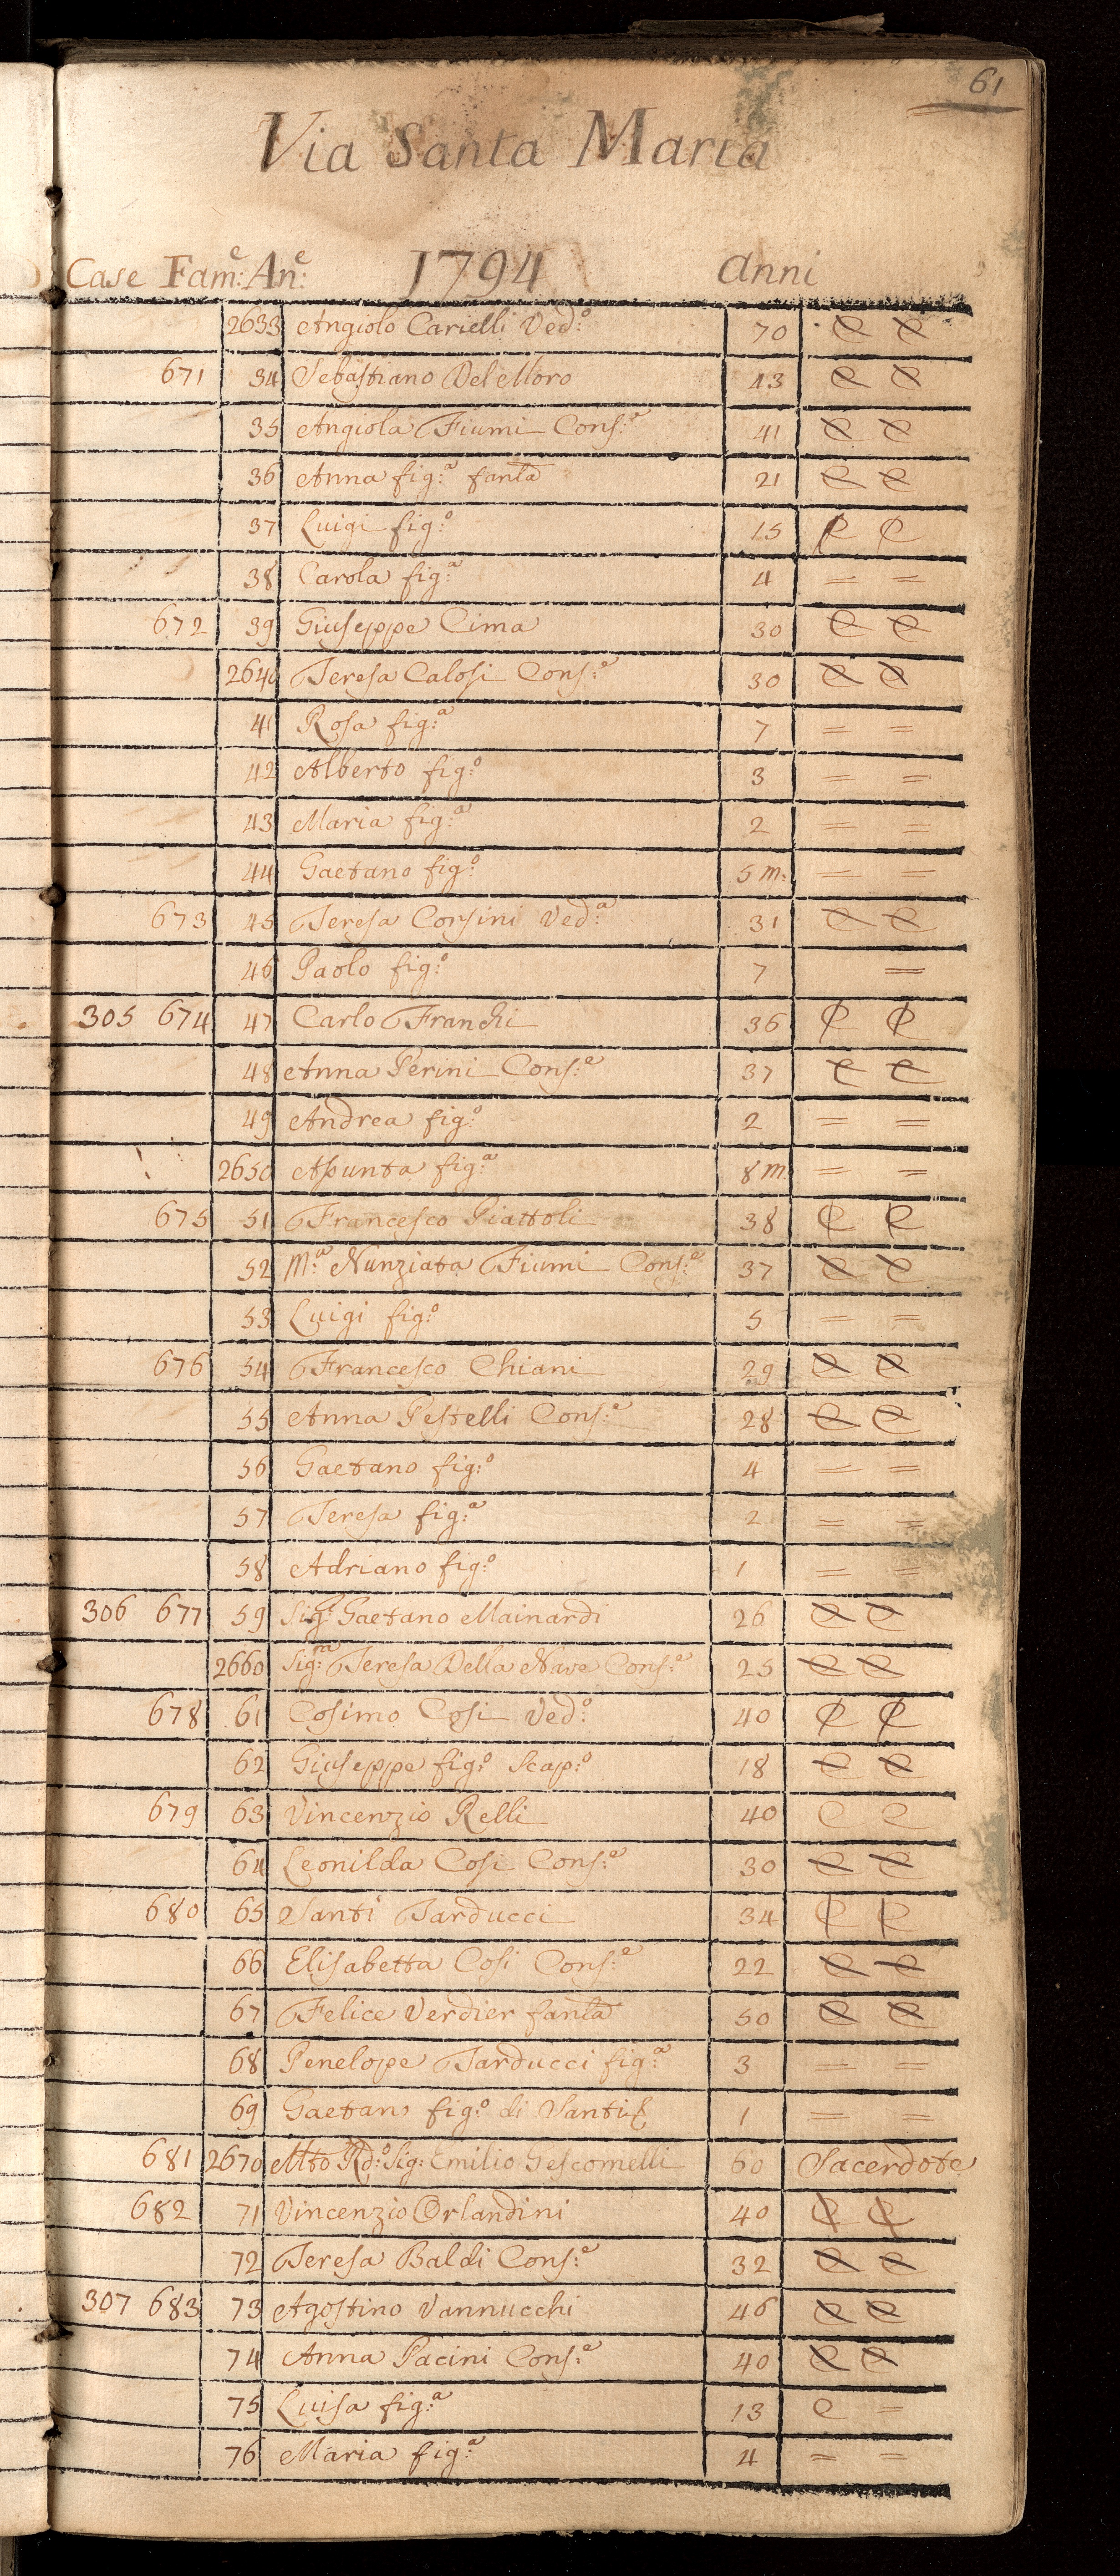 61
Via Santa Maria
Case Fam:e An:e 1794 anni
2633 Angiolo Carielli Ved:o 70 C C
671 34 Sebastiano Del Moro 43 C C
35 Angiola Fiumi Cons:e 41 C C
36 Anna fig:a fanta 21 C C
37 Luigi fig:o 15 C C
38 Carola fig:a 4 = =
672 39 Giuseppe Cima 30 C C
2640 Teresa Calosi Cons:e 30 C C
41 Rosa fig:a 7 = =
42 Alberto fig:o 3 = =
43 Maria fig:a 2 = =
44 Gaetano fig:o 5 m: = =
673 45 Teresa Corsini Ved:a 31 C C
46 Paolo fig:o 7 =
305 674 47 Carlo Franchi 36 C C
48 Anna Perini Cons:e 37 C C
49 Andrea fig:o 2 = =
2650 Asunta fig:a 8 m: = =
675 51 Francesco Piattoli 38 C C
52 M:a Nunziata Fiumi Cons:e 37 C C
53 Luigi fig:o 5 = =
676 54 Francesco Chiani 29 C C
55 Anna Pestelli Cons:e 28 C C
56 Gaetano fig:o 4 = =
57 Teresa fig:a 2 = =
58 Adriano fig:o 1 = =
306 677 59 Sig:e Gaetano Mainardi 26 C C
2660 Sig:ra Teresa Della Nave Cons:e 25 C C
678 61 Cosimo Cosi Ved:o 40 C C
62 Giuseppe fig:o Scap:o 18 C C
679 63 Vincenzio Relli 40 C C
64 Leonilda Cosi Cons:e 30 C C
680 65 Santi Tarducci 34 C C
66 Elisabetta Cosi Cons:e 22 C C
67 Felice Verdier fanta 50 C C
68 Penelope Tarducci fig:a 3 = =
69 Gaetano fig:o di Santi 1 = =
681 2670 Mto Rd:o Sig: Emilio Gescomelli 60 Sacerdote
682 71 Vincenzio Orlandini 40 C C
72 Teresa Baldi Cons:e 32 C C
307 683 73 Agostino Vannucchi 46 C C
74 Anna Pacini Cons:e 40 C C
75 Luisa fig:a 13 C =
76 Maria fig:a 4 = =